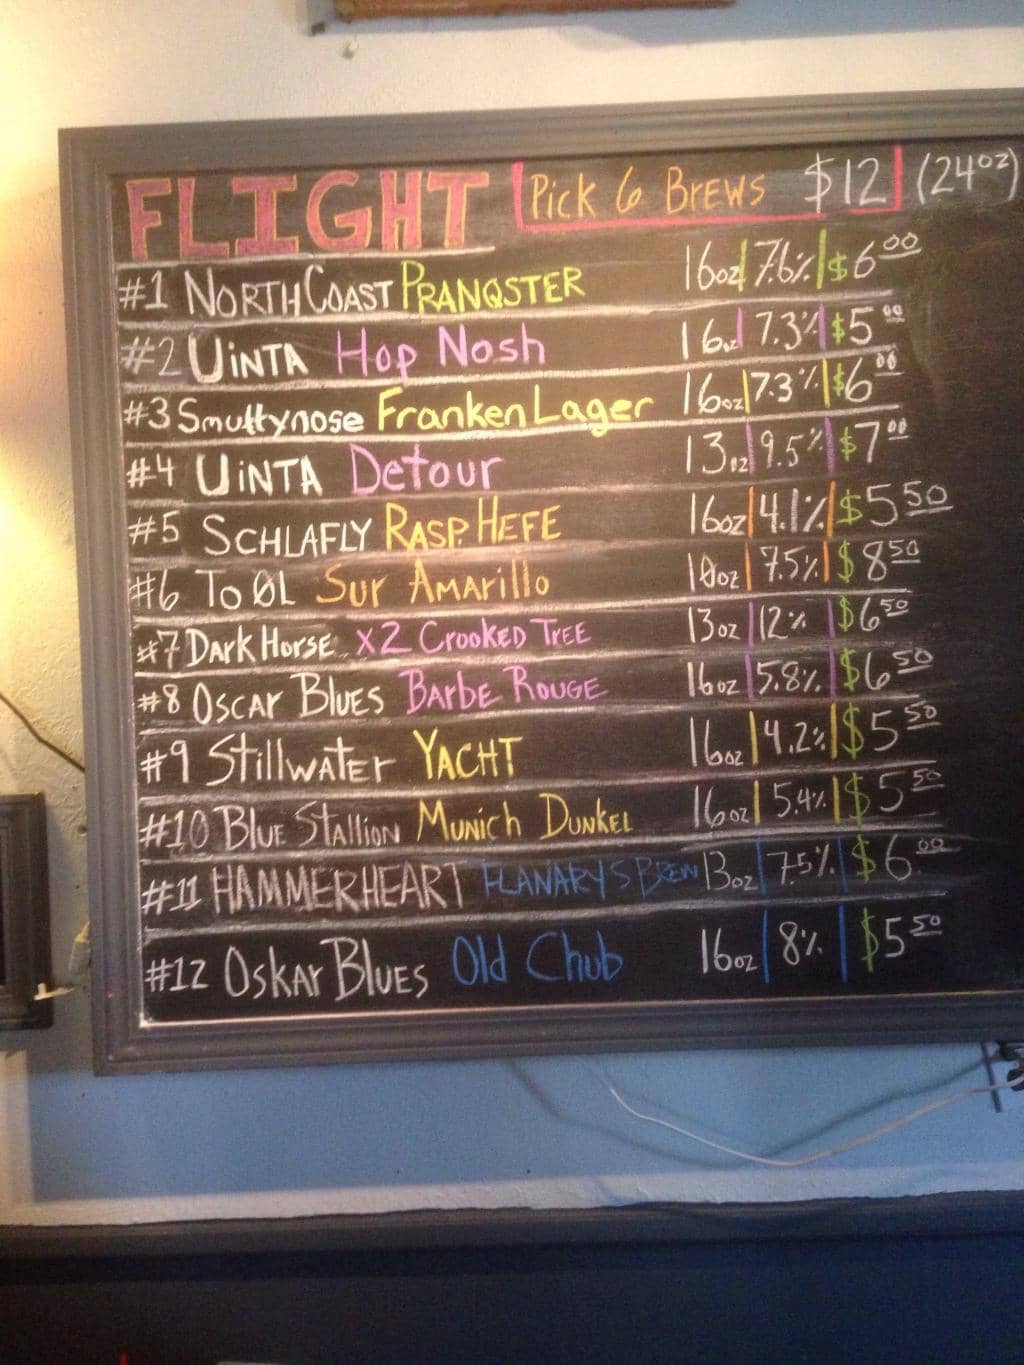 FLIGHT Pick 6 Brews $12 (24oz)
#1 North Coast Pranqster 16oz 7.6% $6.00
#2 Uinta Hop Nosh 16oz 7.3% $5.00
#3 Smuttynose FrankenLager 16oz 7.3% $6.00
#4 Uinta Detour 13oz 9.5% $7.00
#5 Schlafly Rasp. Hefe 16oz 4.1% $5.50
#6 To Øl Sur Amarillo 10oz 7.5% $8.50
#7 Dark Horse x2 Crooked Tree 13oz 12% $6.50
#8 Oscar Blues Barbe Rouge 16oz 5.8% $6.50
#9 Stillwater Yacht 16oz 4.2% $5.50
#10 Blue Stallion Munich Dunkel 16oz 5.4% $5.50
#11 HAMMERHEART FLANARY'S BREW 13oz 7.5% $6.00
#12 Oskar Blues Old Chub 16oz 8% $5.50